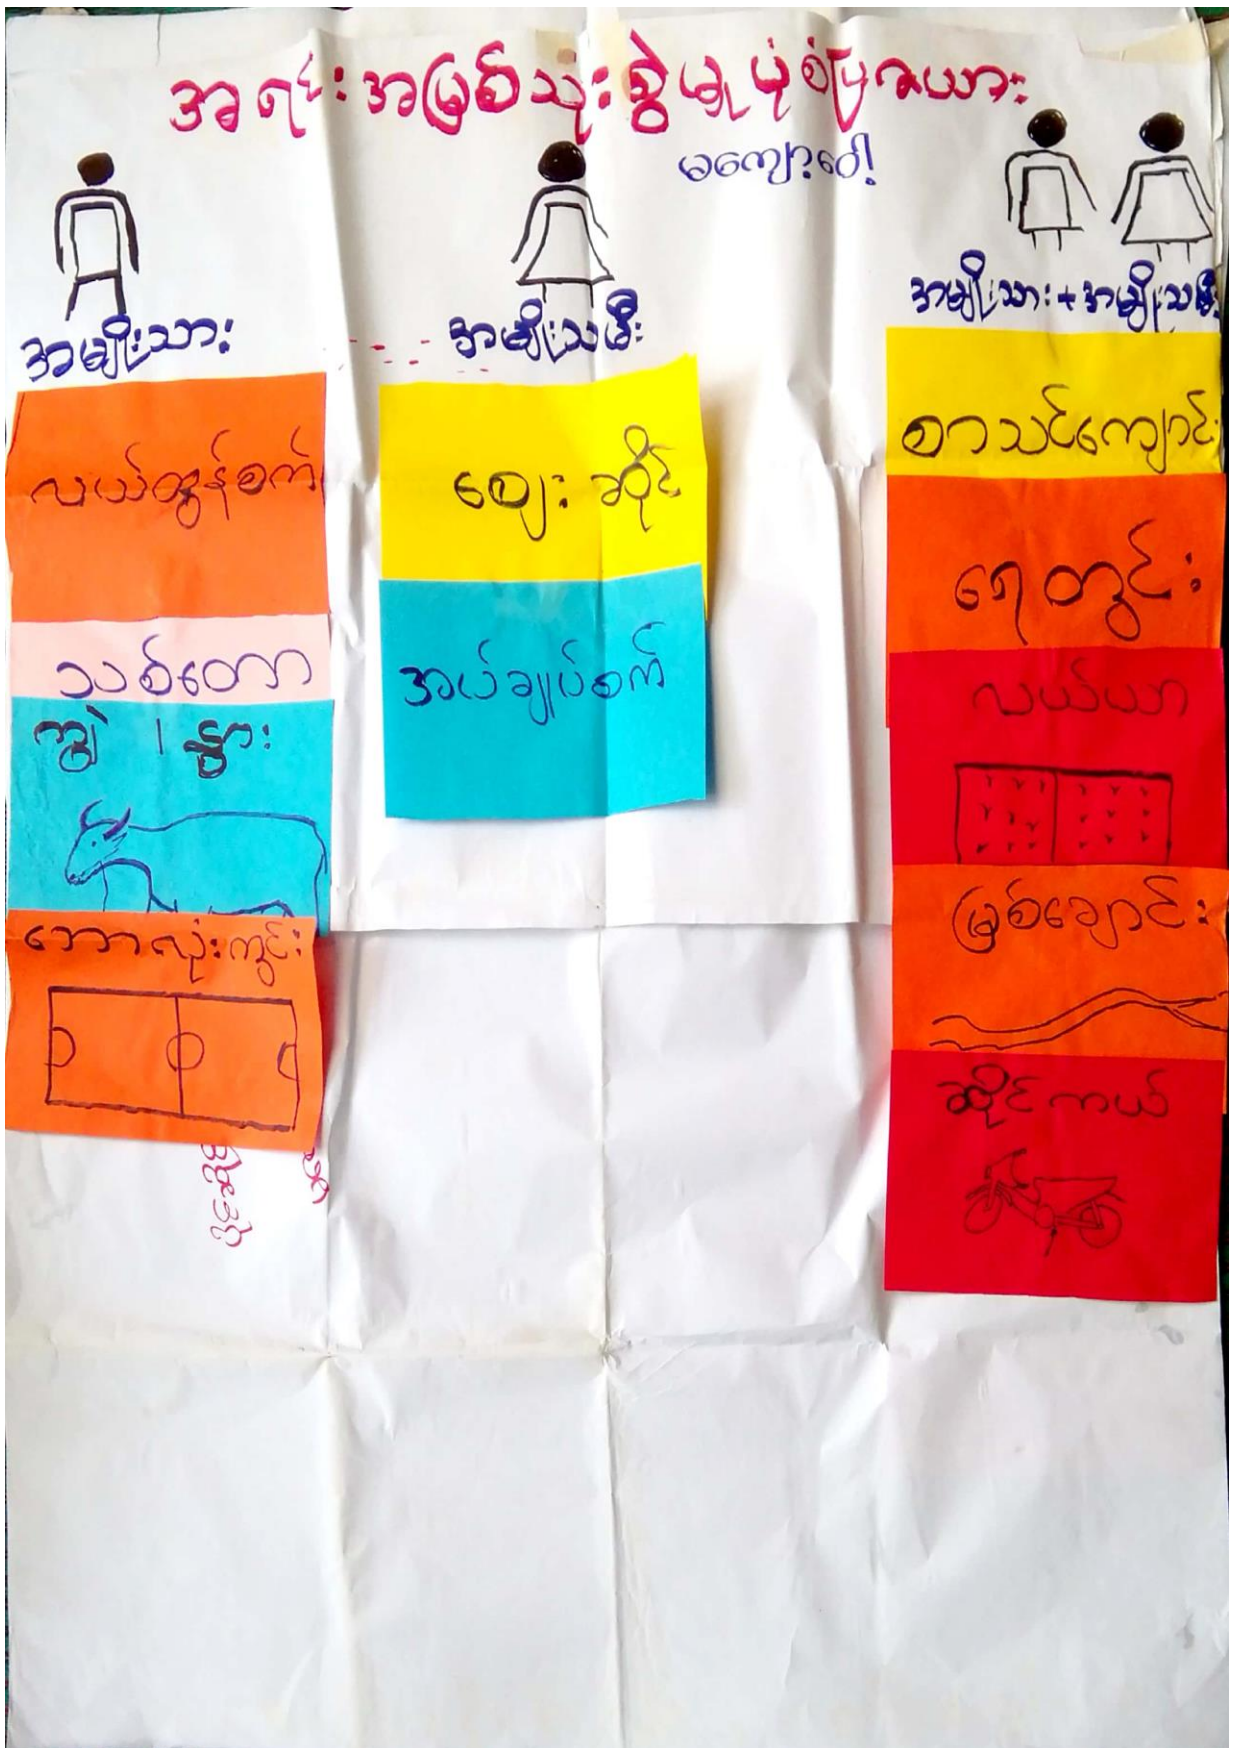 အရင်းအမြစ်သုံးစွဲမှုပုံစံပြဇယား
မကျော့ဝေါ့
အမျိုးသား
အမျိုးသမီး
အမျိုးသား + အမျိုးသမီး
လယ်ထွန်စက်
သစ်တော
ကျွဲ ၊ နွား
ဘောလုံးကွင်း
ဈေးဆိုင်
အပ်ချုပ်စက်
စာသင်ကျောင်း
ရေတွင်း
လယ်ယာ
မြစ်ချောင်း
ဆိုင်ကယ်